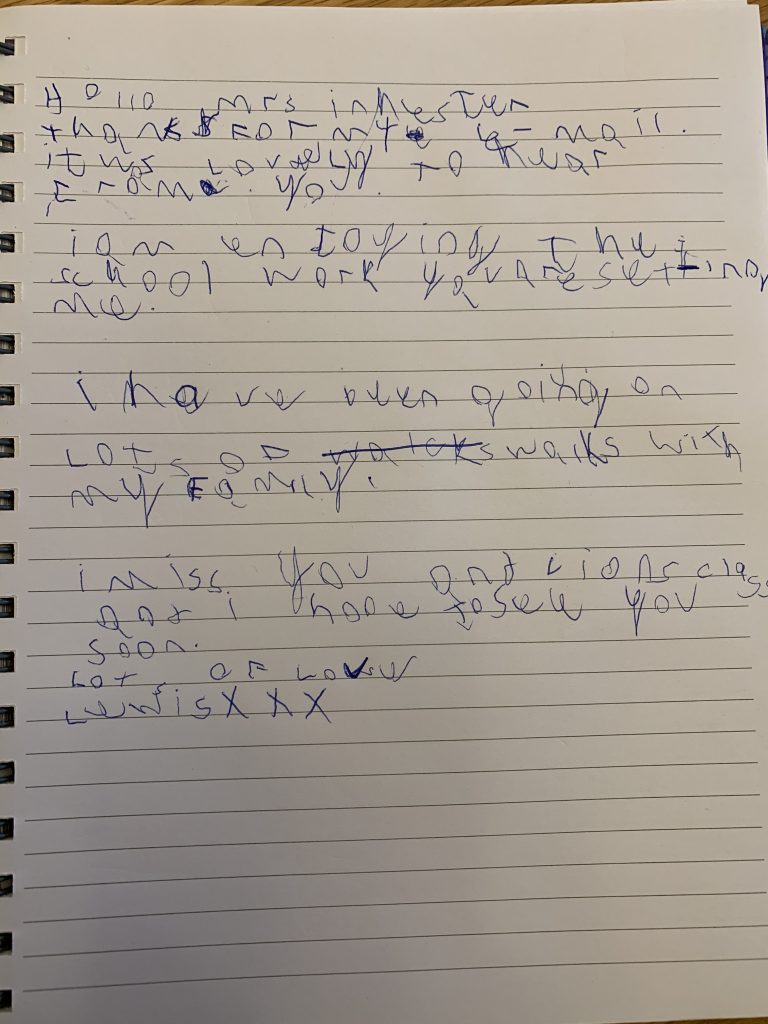 Hollo Mrs inkester
thanks for my e-mail.
it ws Lovely to hear
From you.
i am enjoying the
school work you are setting
me.
i have been going on
Lots of walks with
my Family.
i miss you and Lions class
and i hope to see you
soon.
Lots of Love
Lewis X X X